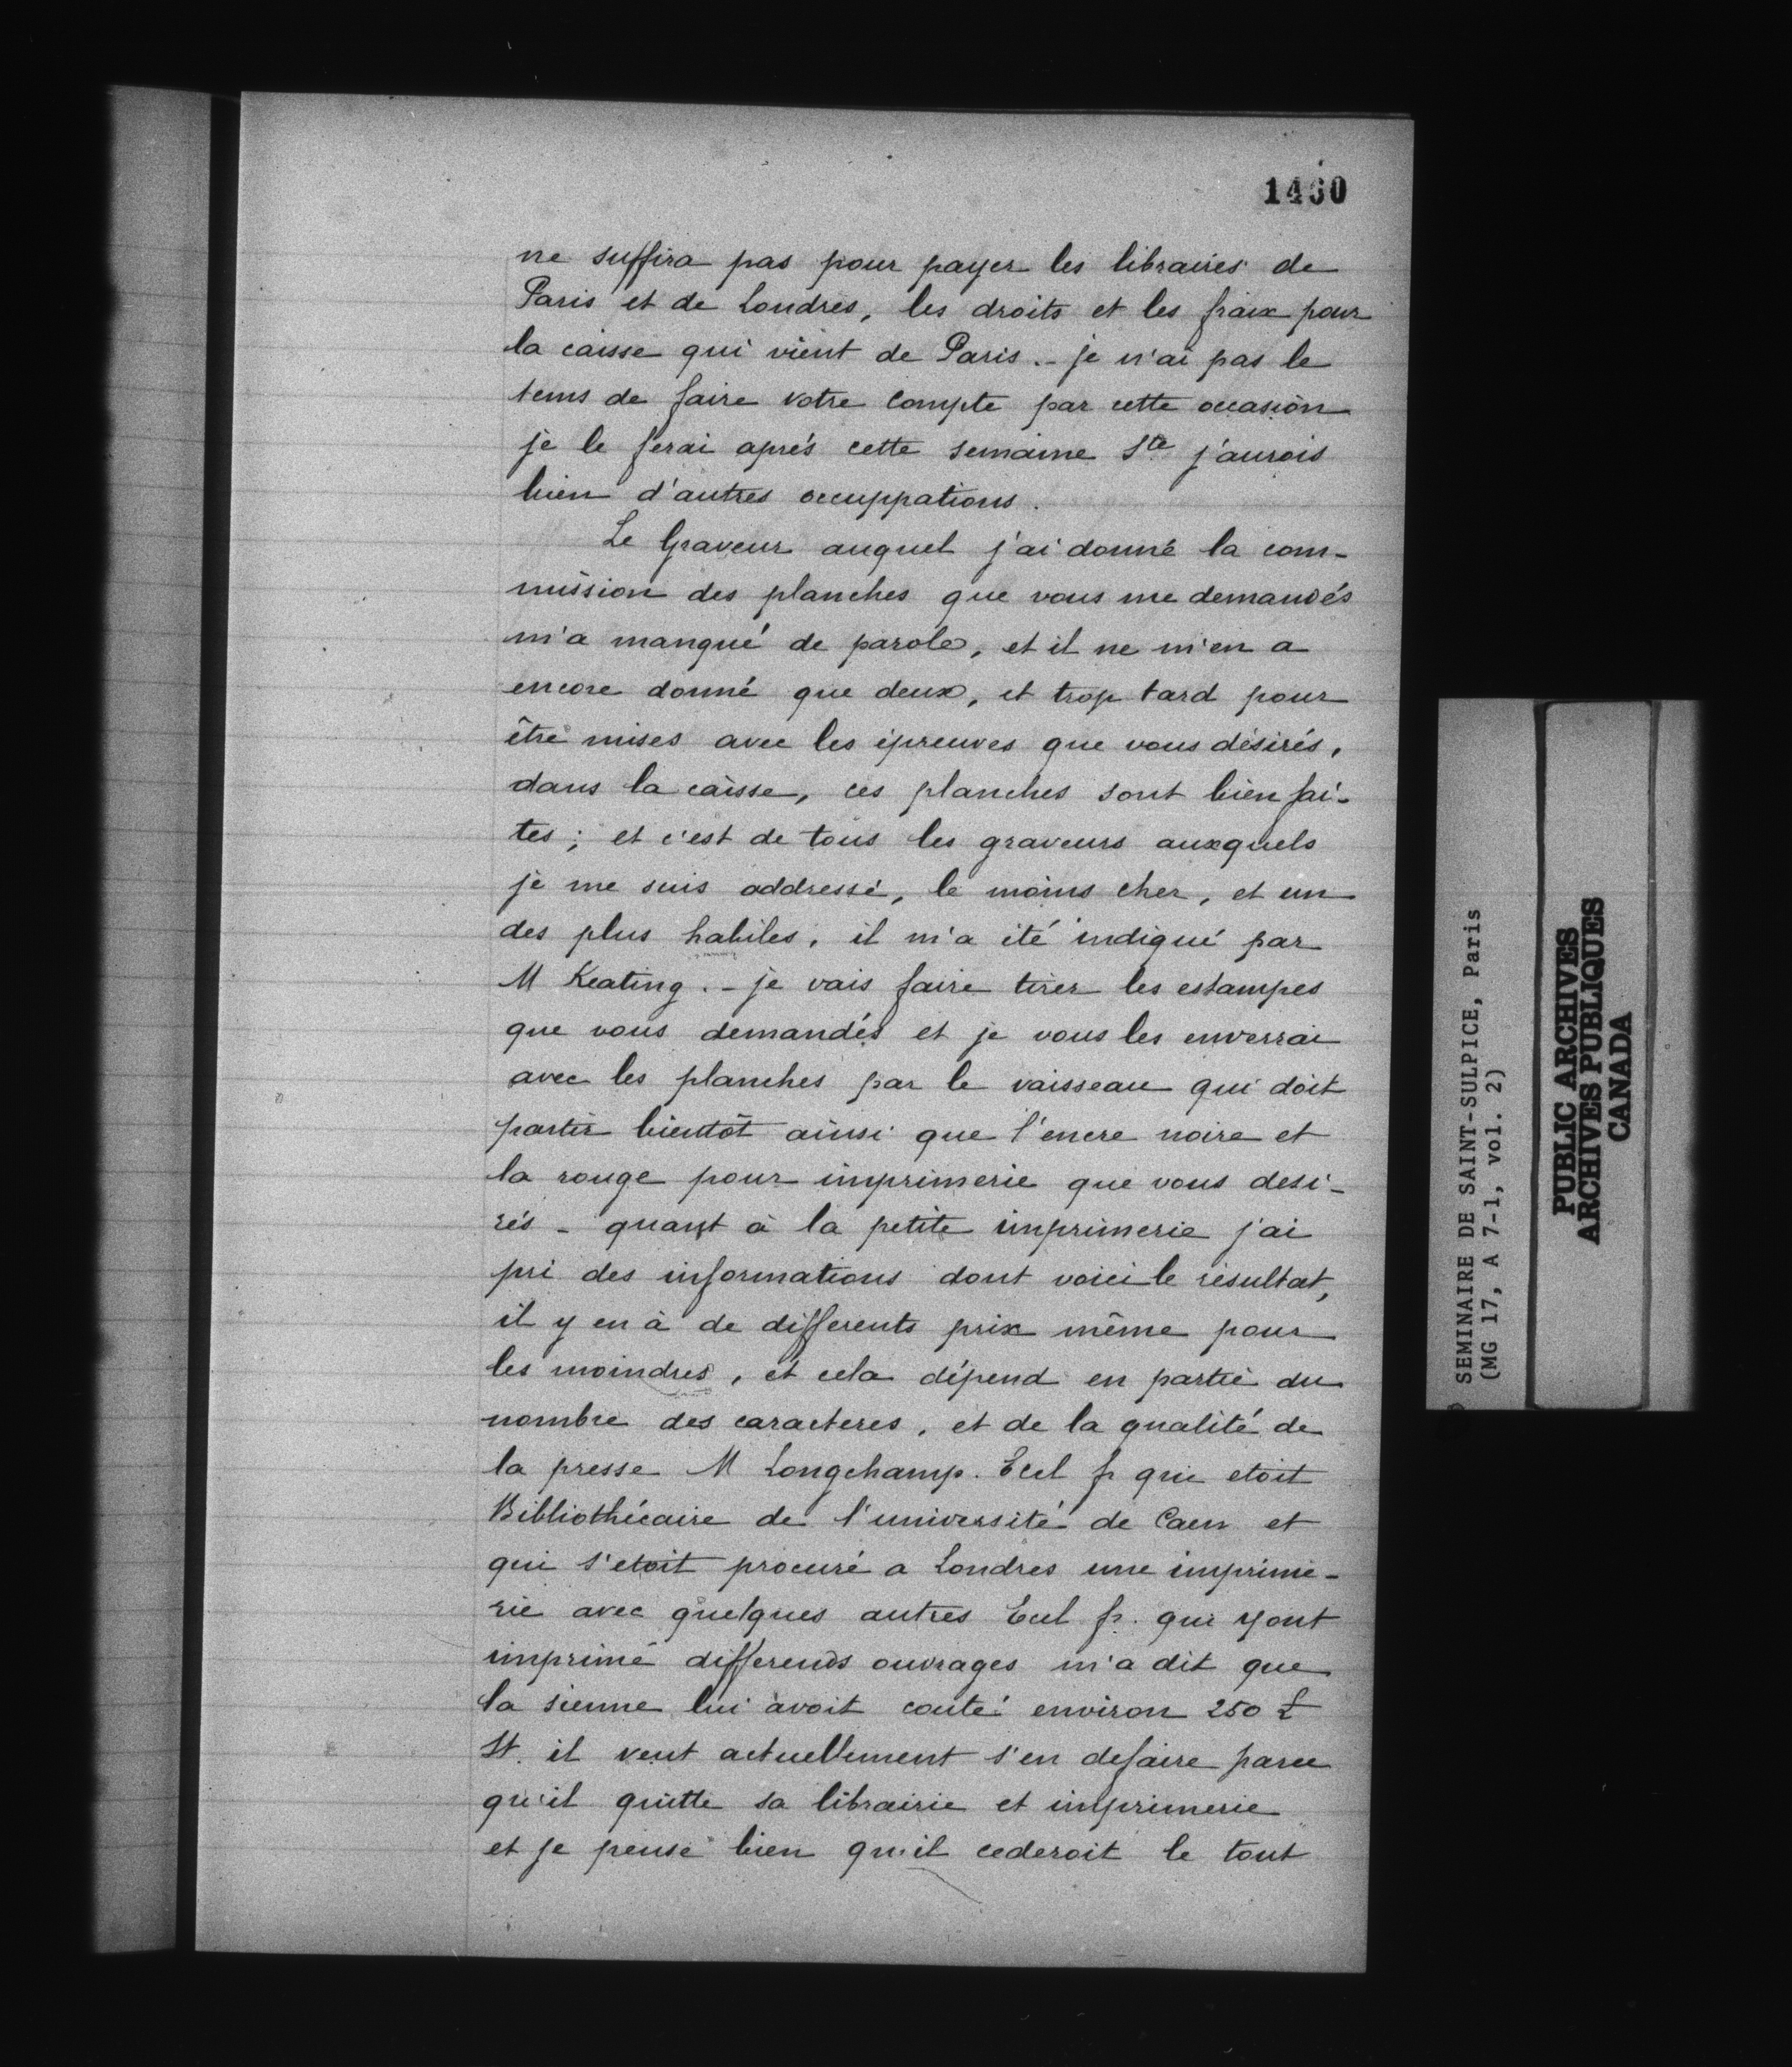 1460
ne suffira pas pour payer les libraires de
Paris et de Londres, les droits et les fraix pour
la caisse qui vient de Paris.- je n'ai pas le
tems de faire votre compte par cette occasion
je le ferai aprés cette semaine Ste j'aurois
bien d'autres occuppations.
Le Graveur auquel j'ai donné la com-
mission des planches que vous me demandés
m'a manqué de parole, et il ne m'en a
encore donné que deux, et trop tard pour
être mises avec les épreuves que vous désirés,
dans la caisse, ces planches sont bien fai-
tes; et c'est de tous les graveurs auxquels
je me suis addressé, le moins cher, et un
des plus habiles, il m'a été indiqué par
M Keating.- je vais faire tirer les estampes
que vous demandés et je vous les enverrai
avec les planches par le vaisseau qui doit
partir bientôt ainsi que l'encre noire et
la rouge pour imprimerie que vous desi-
rés - quant à la petite imprimerie j'ai
pri des informations dont voici le résultat,
il y en à de differents prix même pour
les moindres, et cela dépend en partie du
nombre des caracteres, et de la qualité de
la presse M Longchamp. Eccl fr qui etoit
Bibliothécaire de l'université de Caen et
qui s'etoit procuré a Londres une imprime-
rie avec quelques autres Eccl fr. qui y ont
imprimé differends ouvrages m'a dit que
la sienne lui avoit couté environ 250 £
St. il veut actuellement s'en defaire parce
qu'il quitte sa librairie et imprimerie
et je pense bien qu'il cederoit le tout
SEMINAIRE DE SAINT-SULPICE, Paris
(MG 17, A 7-1, vol. 2)
PUBLIC ARCHIVES
ARCHIVES PUBLIQUES
CANADA